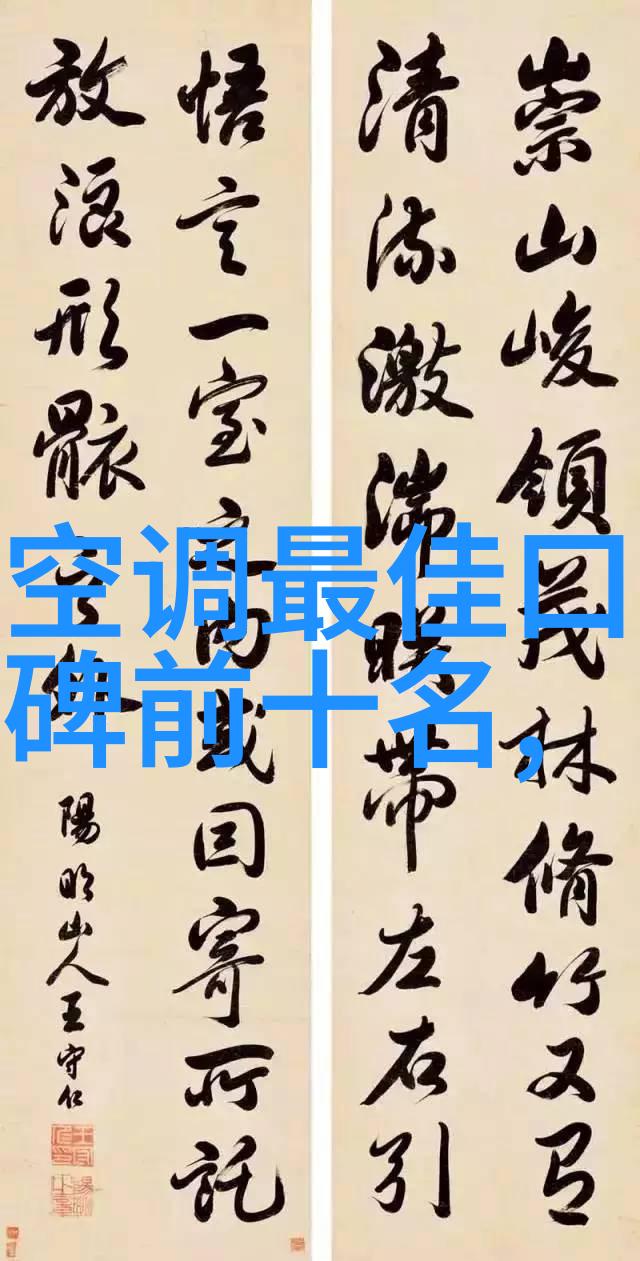 崇山峻領茂林脩竹又有
清流激湍暎帶左右引
悟言一室之内或因寄所託
放浪形骸之外
陽明山人王守仁
空调最佳口
碑前十名,